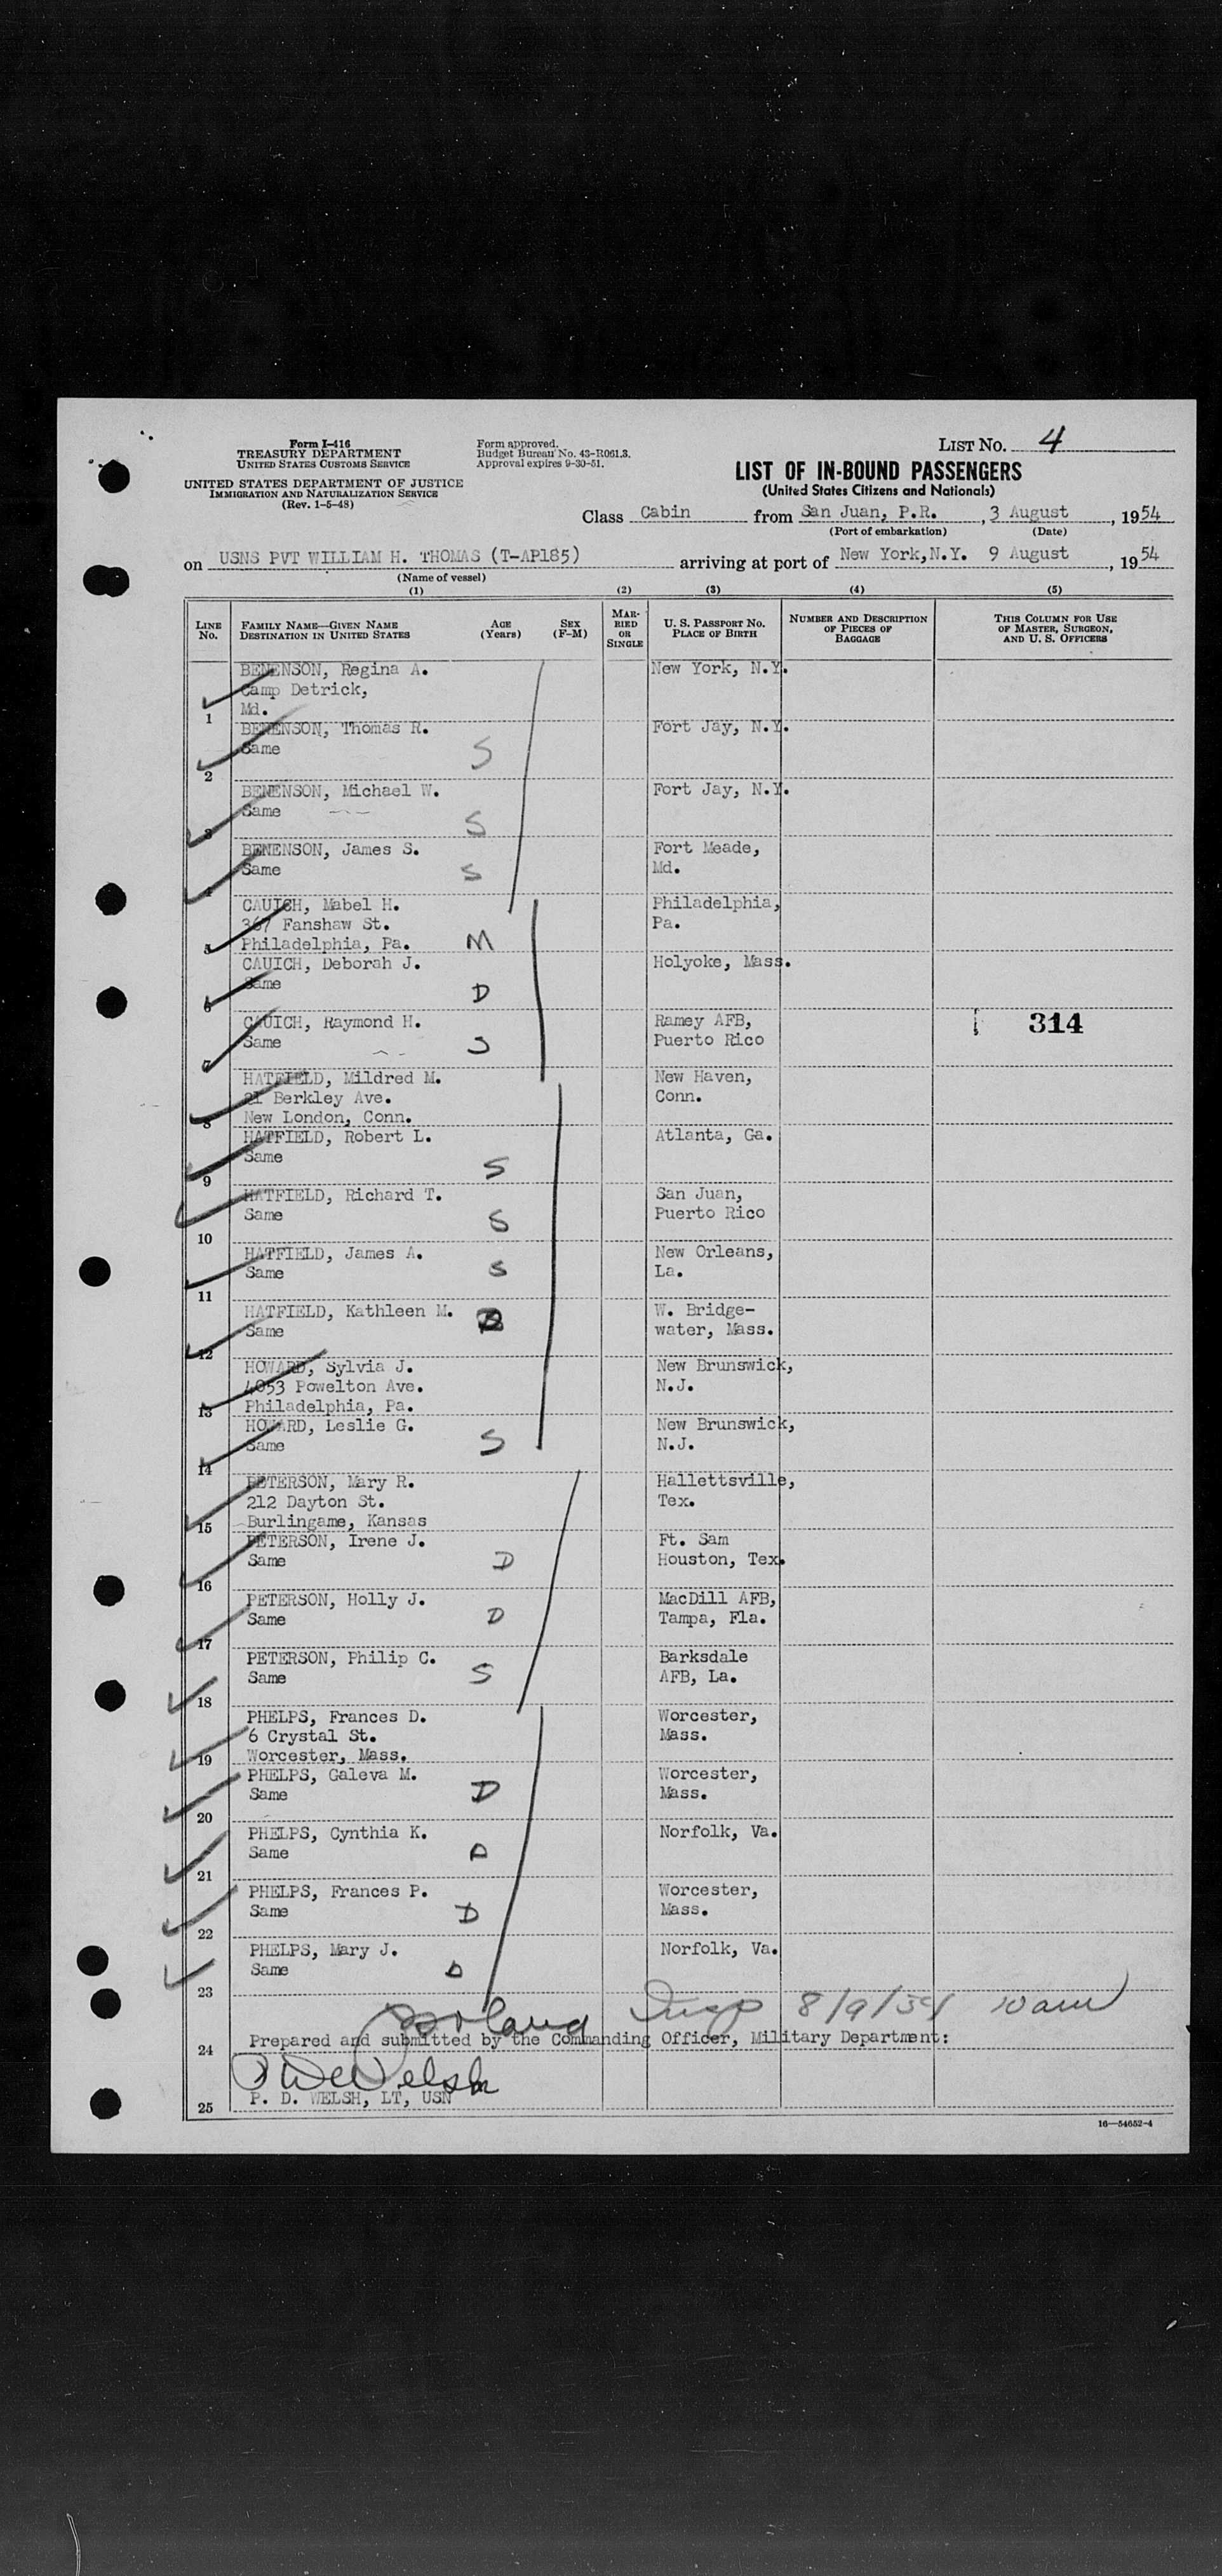 Form I-416
TREASURY DEPARTMENT
UNITED STATES CUSTOMS SERVICE
UNITED STATES DEPARTMENT OF JUSTICE
IMMIGRATION AND NATURALIZATION SERVICE
(Rev. 1-5-48)
Form approved.
Budget Bureau No. 43-R061.3.
Approval expires 9-30-51.
LIST NO. 4
LIST OF IN-BOUND PASSENGERS
(United States Citizens and Nationals)
Class Cabin from San Juan, P.R. , 3 August , 1954
(Port of embarkation) (Date)
on USNS PVT WILLIAM H. THOMAS (T-AP185) arriving at port of New York,N.Y. 9 August , 1954
(Name of vessel)
(1) (2) (3) (4) (5)
LINE No. FAMILY NAME—GIVEN NAME DESTINATION IN UNITED STATES AGE (Years) SEX (F-M) MARRIED OR SINGLE U. S. PASSPORT NO. PLACE OF BIRTH NUMBER AND DESCRIPTION OF PIECES OF BAGGAGE THIS COLUMN FOR USE OF MASTER, SURGEON, AND U. S. OFFICERS
BENENSON, Regina A. New York, N.Y.
Camp Detrick,
1 Md.
BENENSON, Thomas R. Fort Jay, N.Y.
Same S
2
BENENSON, Michael W. Fort Jay, N.Y.
Same S
3
BENENSON, James S. Fort Meade,
Same S Md.
4
CAUICH, Mabel H. Philadelphia,
367 Fanshaw St. Pa.
5 Philadelphia, Pa. M
CAUICH, Deborah J. Holyoke, Mass.
Same D
6
CAUICH, Raymond H. Ramey AFB, 314
Same S Puerto Rico
7
HATFIELD, Mildred M. New Haven,
21 Berkley Ave. Conn.
8 New London, Conn.
HATFIELD, Robert L. Atlanta, Ga.
Same S
9
HATFIELD, Richard T. San Juan,
Same S Puerto Rico
10
HATFIELD, James A. New Orleans,
Same S La.
11
HATFIELD, Kathleen M. W. Bridge-
Same D water, Mass.
12
HOWARD, Sylvia J. New Brunswick,
4053 Powelton Ave. N.J.
13 Philadelphia, Pa.
HOWARD, Leslie G. New Brunswick,
Same S N.J.
14
PETERSON, Mary R. Hallettsville,
212 Dayton St. Tex.
15 Burlingame, Kansas
PETERSON, Irene J. Ft. Sam
Same D Houston, Tex.
16
PETERSON, Holly J. MacDill AFB,
Same D Tampa, Fla.
17
PETERSON, Philip C. Barksdale
Same S AFB, La.
18
PHELPS, Frances D. Worcester,
6 Crystal St. Mass.
19 Worcester, Mass.
PHELPS, Galeva M. Worcester,
Same D Mass.
20
PHELPS, Cynthia K. Norfolk, Va.
Same D
21
PHELPS, Frances P. Worcester,
Same D Mass.
22
PHELPS, Mary J. Norfolk, Va.
Same D
23
Insp 8/9/54 10 am
Prepared and submitted by the Commanding Officer, Military Department:
24
P D Welsh
P. D. WELSH, LT, USN
25
16—54652-4